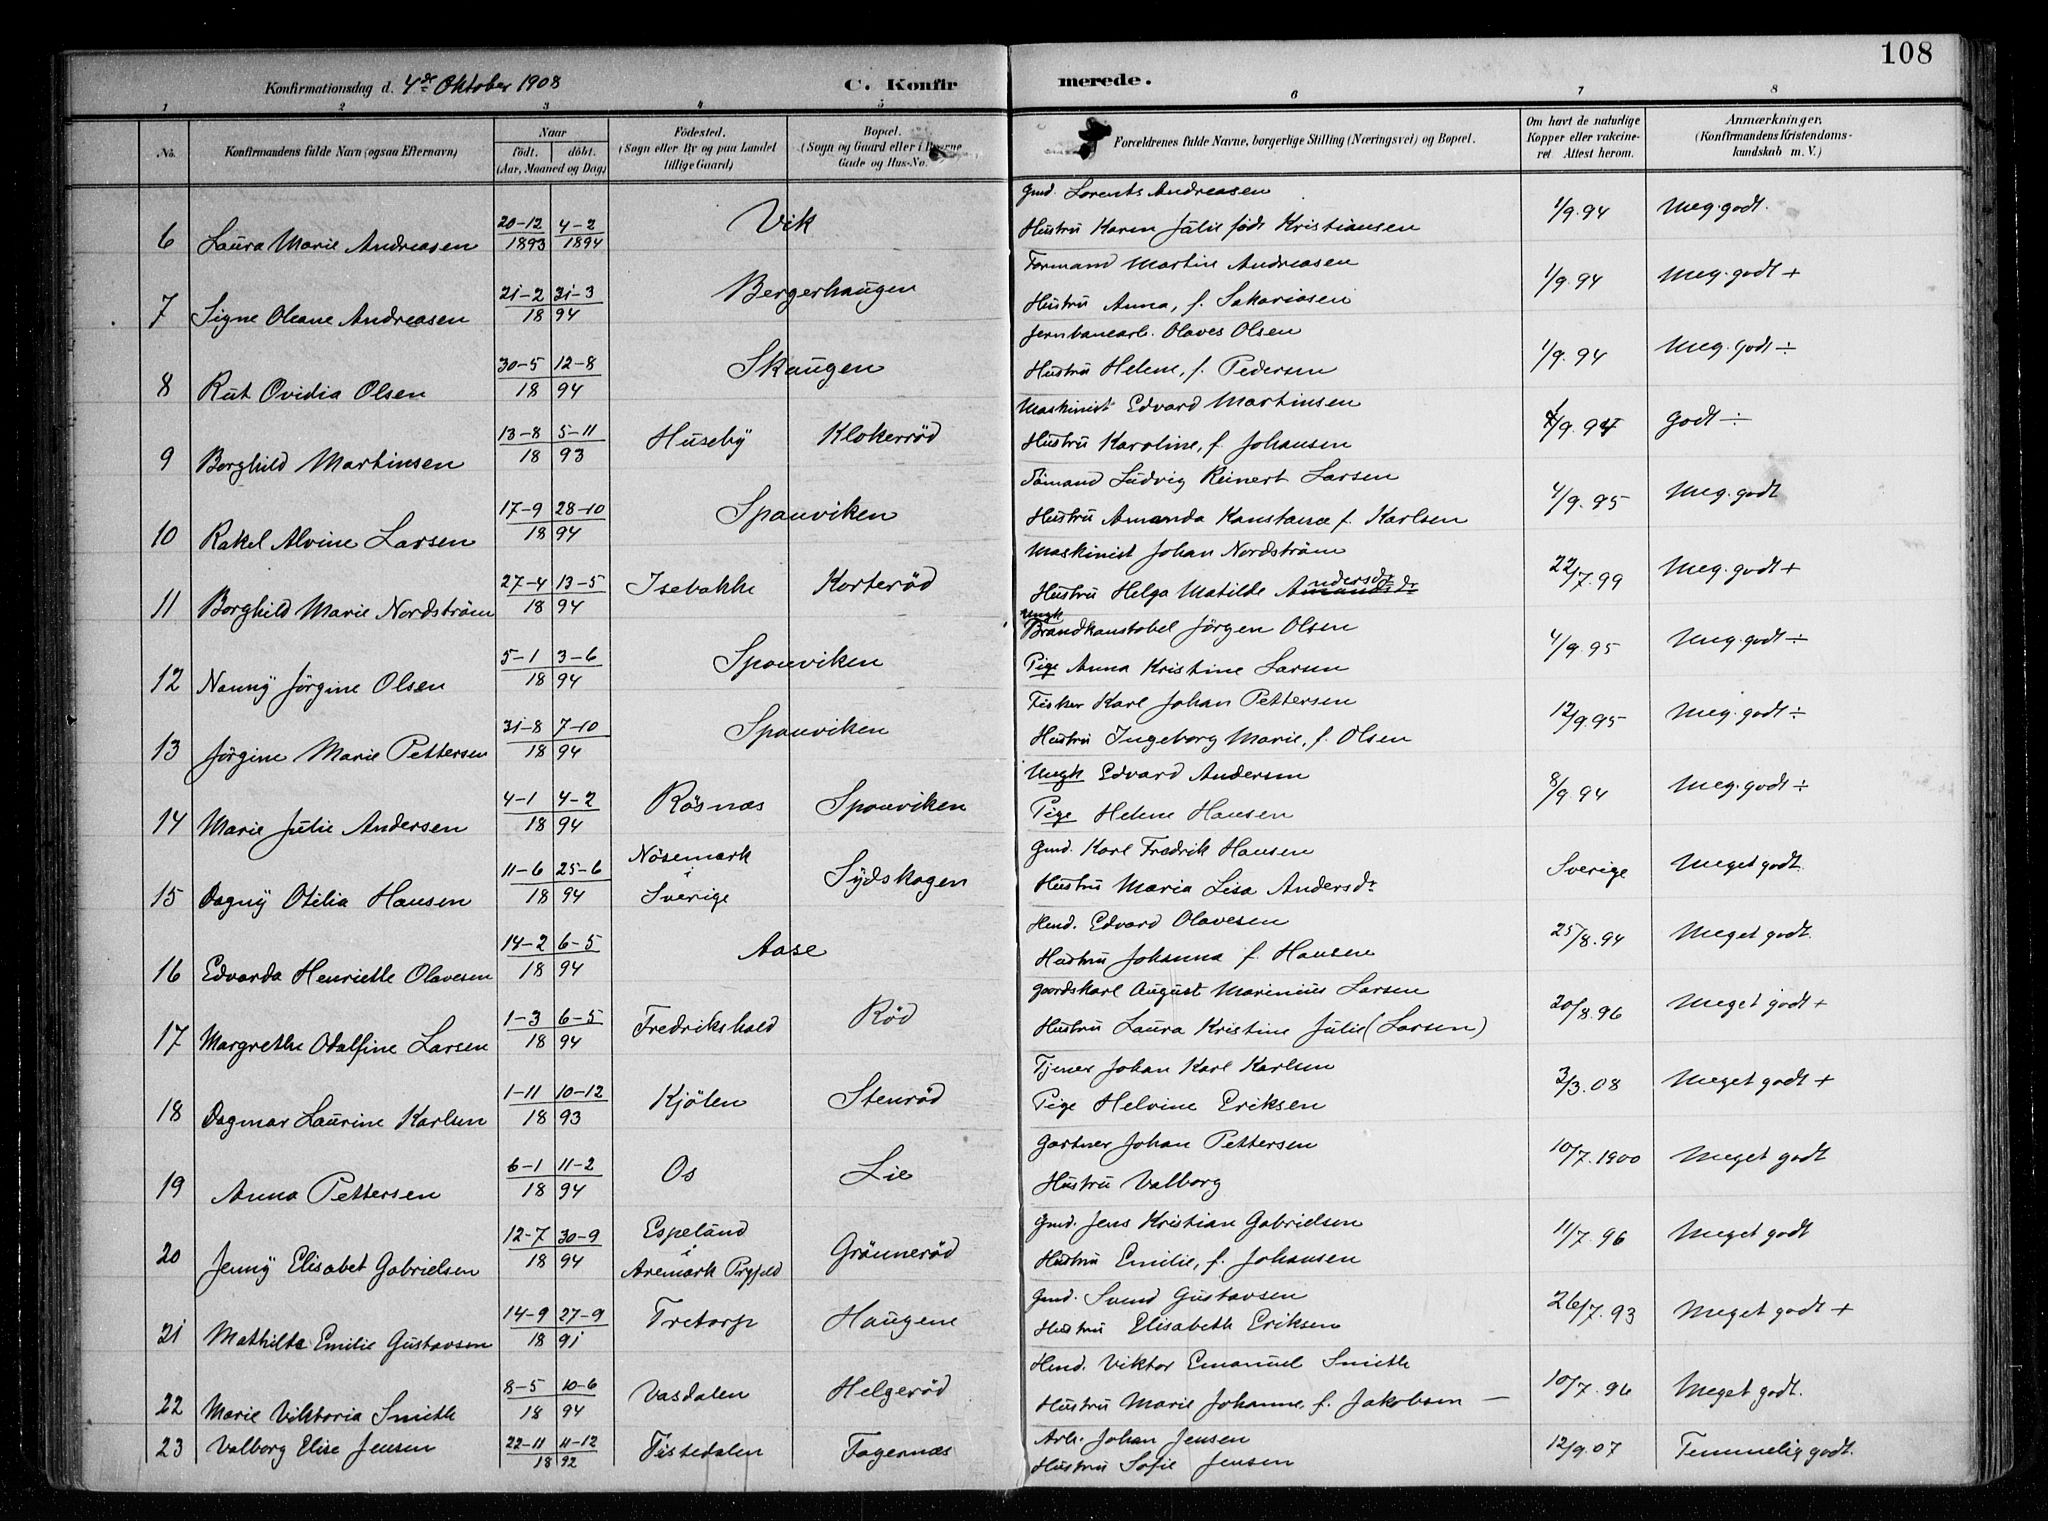 108
Konfirmationsdag d. 4de Oktober 1908 C. Konfirmerede.
1 2 3 4 5 6 7 8
No. Konfirmandens fulde Navn (ogsaa Efternavn) Naar födt. döbt. (Aar, Maaned og Dag) Födested. (Sogn eller By og paa Landet tillige Gaard) Bopæl. (Sogn og Gaard eller i Byerne Gade og Hus-No. Forældrenes fulde Navne, borgerlige Stilling (Næringsvei) og Bopæl. Om havt de naturlige Kopper eller vaccineret. Attest herom. Anmærkninger. (Konfirmandens Kristendomskundskab m. V.)
6 Laura Marie Andreasen 20-12 1893 4-2 1894 Vik Gmd. Lorents Andreasen
Hustru Karen Julie født Kristiansen 1/9.94 Meg. godt.
7 Signe Oleane Andreasen 21-2 31-3 1894 Bergerhaugen Formand Martin Andreasen
Hustru Anna, f. Sakariasen 1/9.94 Meg. godt +
8 Rut Ovidia Olsen 30-5 12-8 1894 Skaugen Jernbanearb. Olaves Olsen
Hustru Helene, f. Pedersen 1/9.94 Meg. godt ÷
9 Borghild Martinsen 13-8 5-11 1893 Huseby Klokerrød Maskinist Edvard Martinsen
Hustru Karoline, f. Johansen 1/9.94 Godt ÷
10 Rakel Alvine Larsen 17-9 28-10 1894 Sponviken Sömand Ludvig Reinert Larsen
Hustru Amanda Konstance f. Karlsen 4/9.95 Meg. godt
11 Borghild Marie Nordström 27-4 13-5 1894 Isebakke Korterød Maskinist Johan Nordström
Hustru Helga Matilde Andersdr 22/7.99 Meg. godt +
12 Nanny Jørgine Olsen 5-1 3-6 1894 Sponviken Ungk Brandkonstabel Jørgen Olsen
Pige Anna Kristine Larsen 4/9.95 Meg. godt ÷
13 Jørgine Marie Pettersen 31-8 7-10 1894 Sponviken Fisker Karl Johan Pettersen
Hustru Ingeborg Marie, f. Olsen 12/9.95 Meg. godt ÷
14 Marie Julie Andersen 4-1 4-2 1894 Røsnæs Sponviken Ungk Edvard Andersen
Pige Helene Hansen 8/9.94 Meg. godt ÷
15 Dagny Otilia Hansen 11-6 25-6 1894 Nösemark i Sverige Sydskogen Gmd. Karl Fredrik Hansen
Hustru Maria Lisa Andersdr Sverige Meget godt
16 Edvarda Henriette Olavesen 14-2 6-5 1894 Aase Hmd. Edvard Olavesen
Hustru Johanna f. Hansen 25/8.94 Meget godt.
17 Margrethe Odalfine Larsen 1-3 6-5 1894 Fredrikshald Rød Gaardskarl August Marinius Larsen
Hustru Laura Kristine Julie (Larsen) 20/8.96 Meget godt +
18 Dagmar Laurine Karlsen 1-11 10-12 1893 Kjölen Stenrød Tjener Johan Karl Karlsen
Pige Helvine Eriksen 3/3.08 Meget godt +
19 Anna Pettersen 6-1 11-2 1894 Os Lie Gartner Johan Pettersen
Hustru Valborg 10/7.1900 Meget godt
20 Jenny Elisabet Gabrielsen 12-7 30-9 1894 Espeland i Aremark Prgjeld Grönnerød Gmd. Jens Kristian Gabrielsen
Hustru Emilie, f. Johansen 11/7.96 Meget godt
21 Mathilde Emilie Gustavsen 14-9 27-9 1891 Tretorp Haugene Gmd. Svend Gustavsen
Hustru Elisabeth Eriksen 26/7.93 Meget godt +
22 Marie Viktoria Smith 8-5 10-6 1894 Vasdalen Helgerød Hmd. Viktor Emanuel Smith
Hustru Marie Johanne, f. Jakobsen — 10/7.96 Meget godt.
23 Valborg Elise Jensen 22-11 11-12 1892 Tistedalen Fagernæs Arb. Johan Jensen
Hustru Sofie Jensen 12/9.07 Temmelig godt.